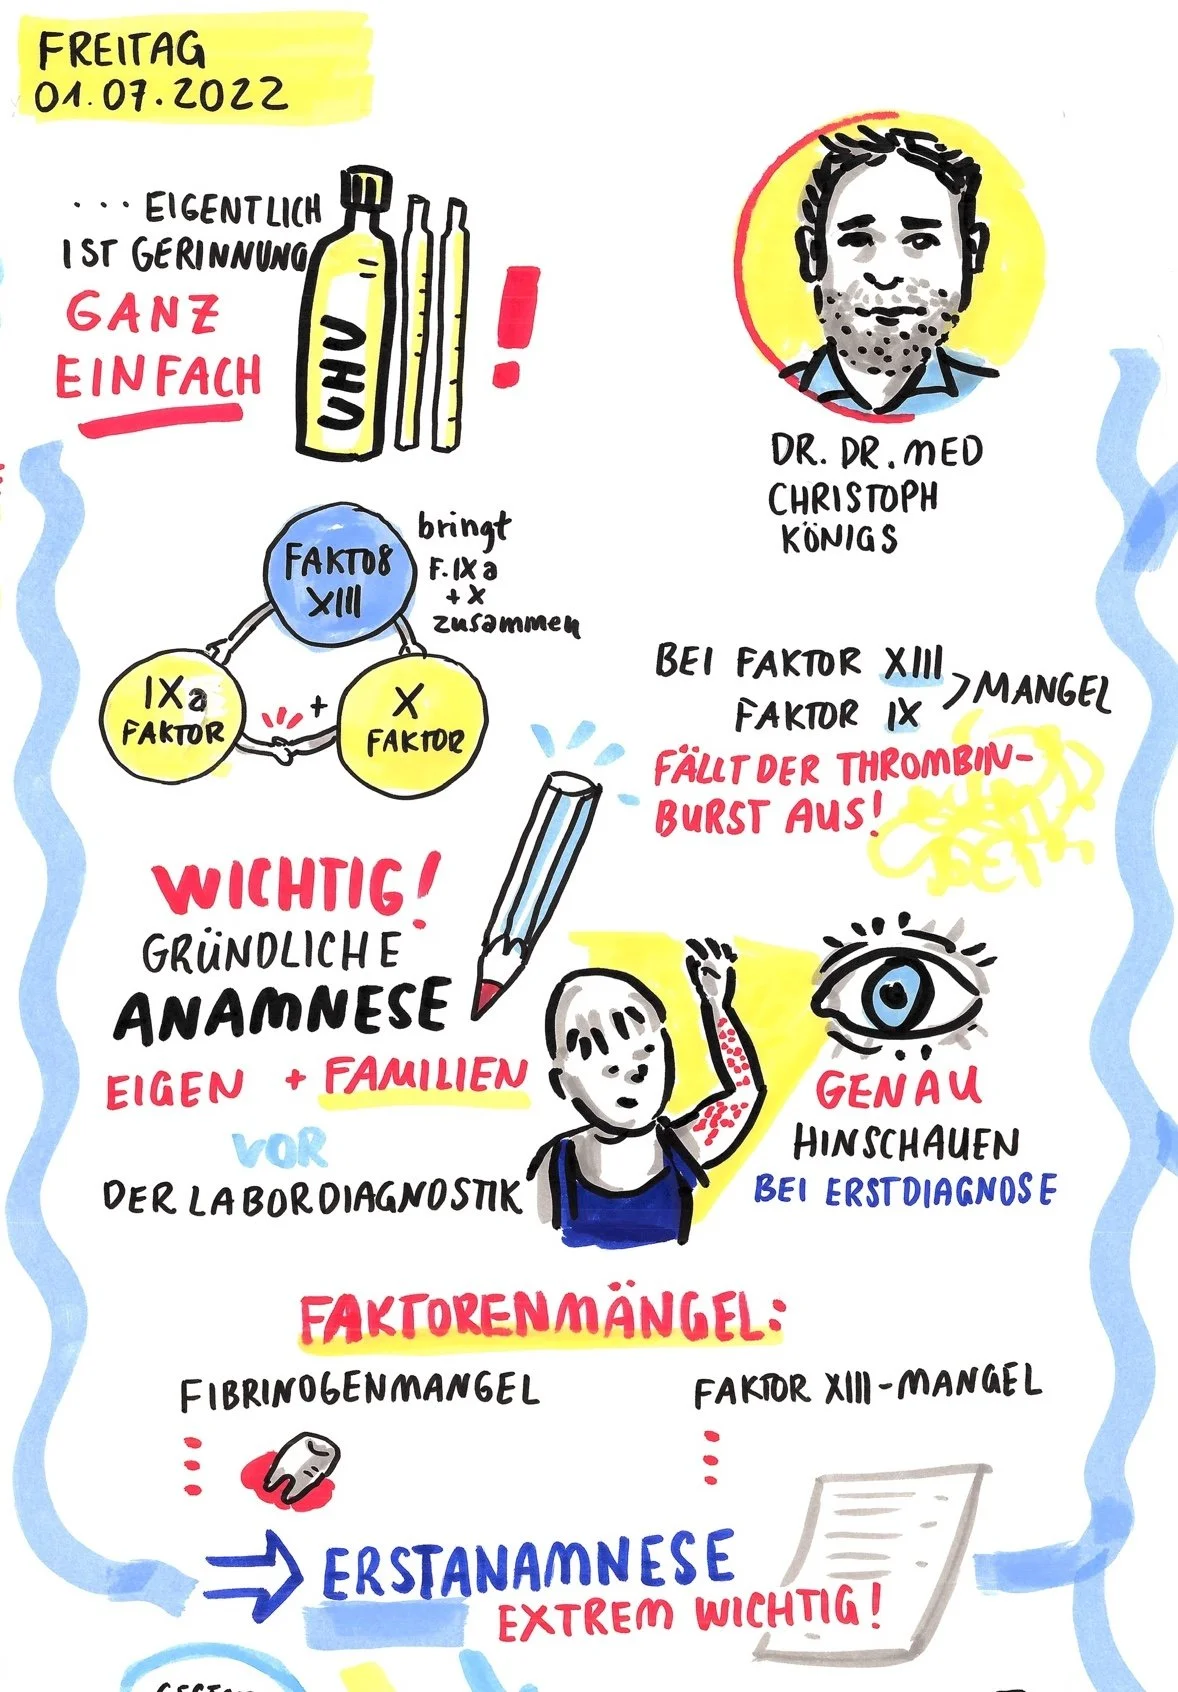 FREITAG
01.07.2022
... EIGENTLICH
IST GERINNUNG
GANZ
EINFACH
!
UHU
DR. DR. MED
CHRISTOPH
KÖNIGS
FAKTO8
XIII
bringt
F. IXa
+ X
zusammen
IXa
FAKTOR
+
X
FAKTOR
BEI FAKTOR XIII
FAKTOR IX
> MANGEL
FÄLLT DER THROMBIN-
BURST AUS!
WICHTIG!
GRÜNDLICHE
ANAMNESE
EIGEN + FAMILIEN
VOR
DER LABORDIAGNOSTIK
GENAU
HINSCHAUEN
BEI ERSTDIAGNOSE
FAKTORENMÄNGEL:
FIBRINOGENMANGEL
FAKTOR XIII-MANGEL
ERSTANAMNESE
EXTREM WICHTIG!